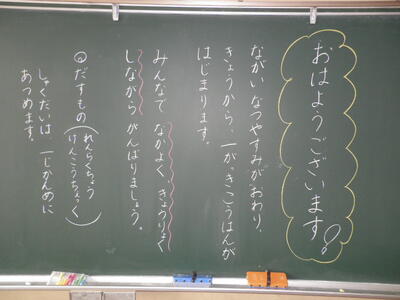 おはようございます。
ながい なつやすみが おわり、
きょうから、一がっきこうはんが
はじまります。
みんなで なかよく きょうりょく
しながら がんばりましょう。
◎だすもの(れんらくちょう
けんこうちょく)
しゅくだいは 一じかんめに
あつめます。